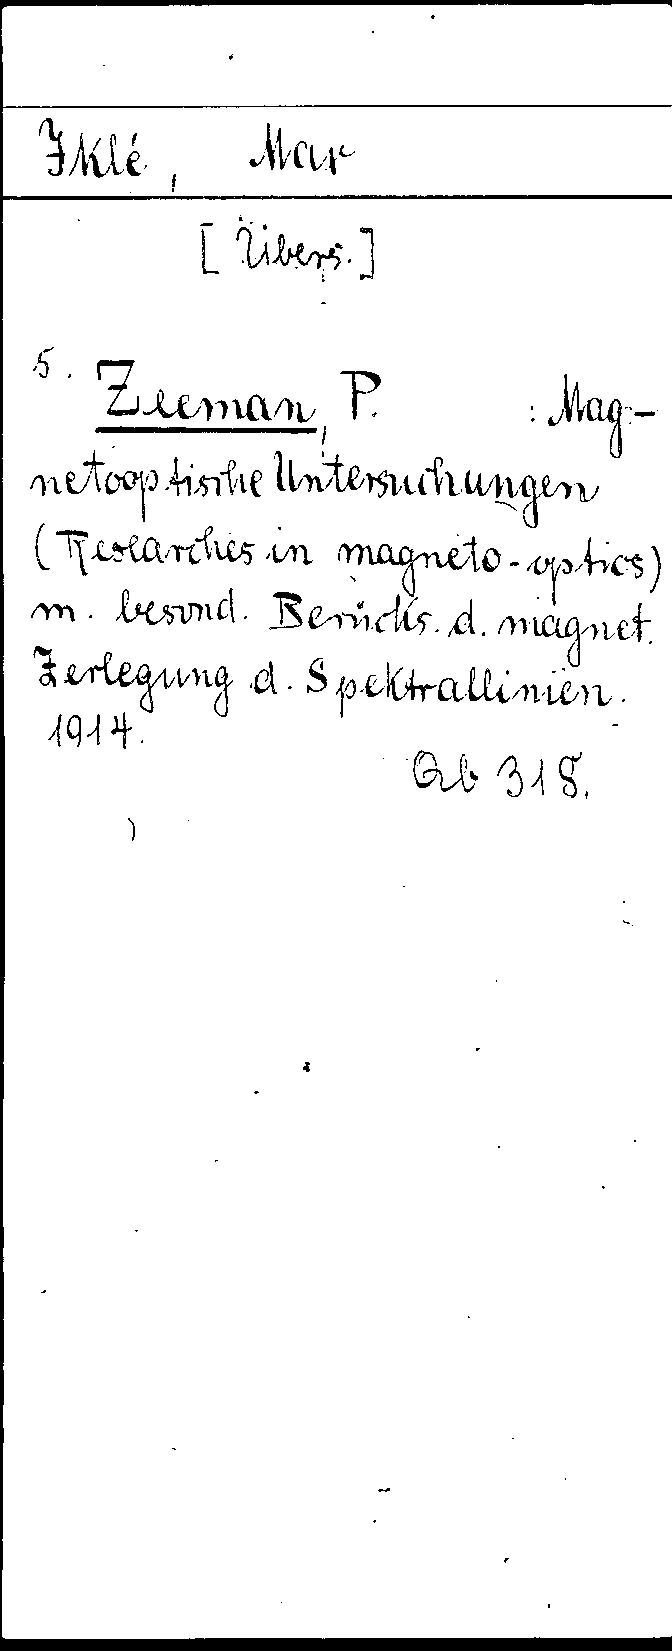 Iklé, Max
[Übers.]
5. Zeeman, P. : Mag-
netooptische Untersuchungen
(Researches in magneto-optics)
m. besond. Berücks. d. magnet.
Zerlegung d. Spektrallinien.
1914.
Qb 318.